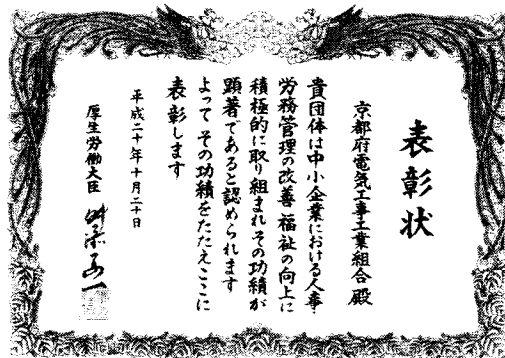 表彰状
京都府電気工事工業組合殿
貴団体は中小企業における人事
労務管理の改善福祉の向上に
積極的に取り組まれその功績が
顕著であると認められます
よってその功績をたたえここに
表彰します
平成二十年十月二十日
厚生労働大臣